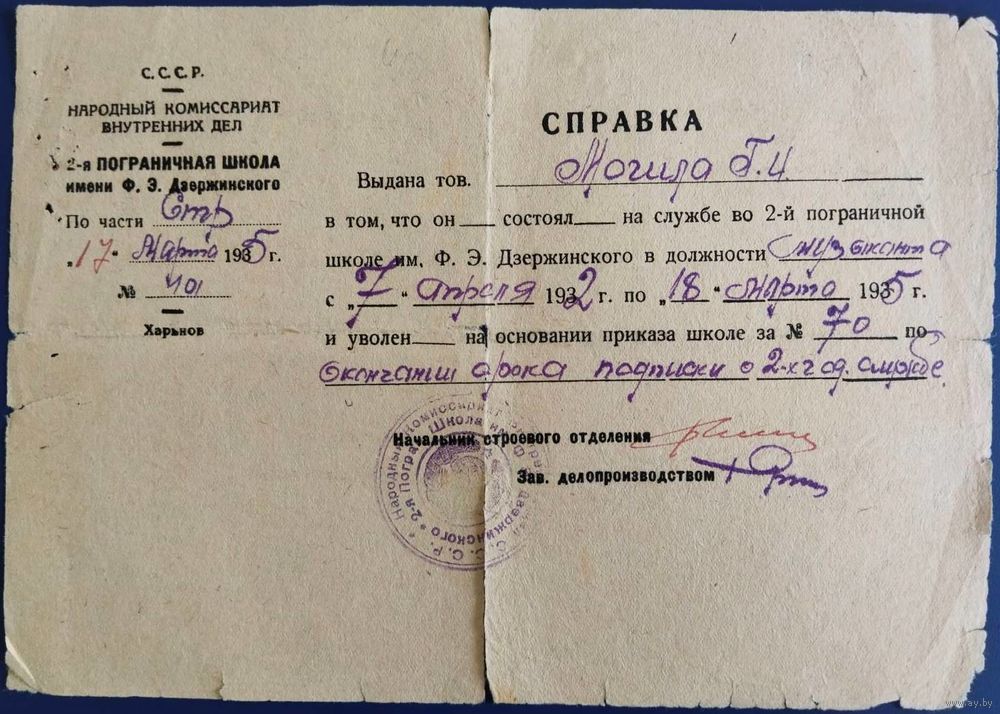 С.С.С.Р.
НАРОДНЫЙ КОМИССАРИАТ
ВНУТРЕННИХ ДЕЛ
2-я ПОГРАНИЧНАЯ ШКОЛА
имени Ф. Э. Дзержинского
По части Стр
„17" Марта 1935 г.
№ 401
Харьнов
СПРАВКА
Выдана тов. Могила Г.И.
в том, что он состоял на службе во 2-й пограничной
школе им. Ф. Э. Дзержинского в должности музыканта
с „7" апреля 1932 г. по „18" марта 1935 г.
и уволен на основании приказа школе за № 70 по
окончании срока подписки о 2-х год. службе
Начальник строевого отделения
Зав. делопроизводством
Народный Комиссариат
С.С.Р. * 2-я Погран Школа им. Ф. Дзержинского *
www.ay.by